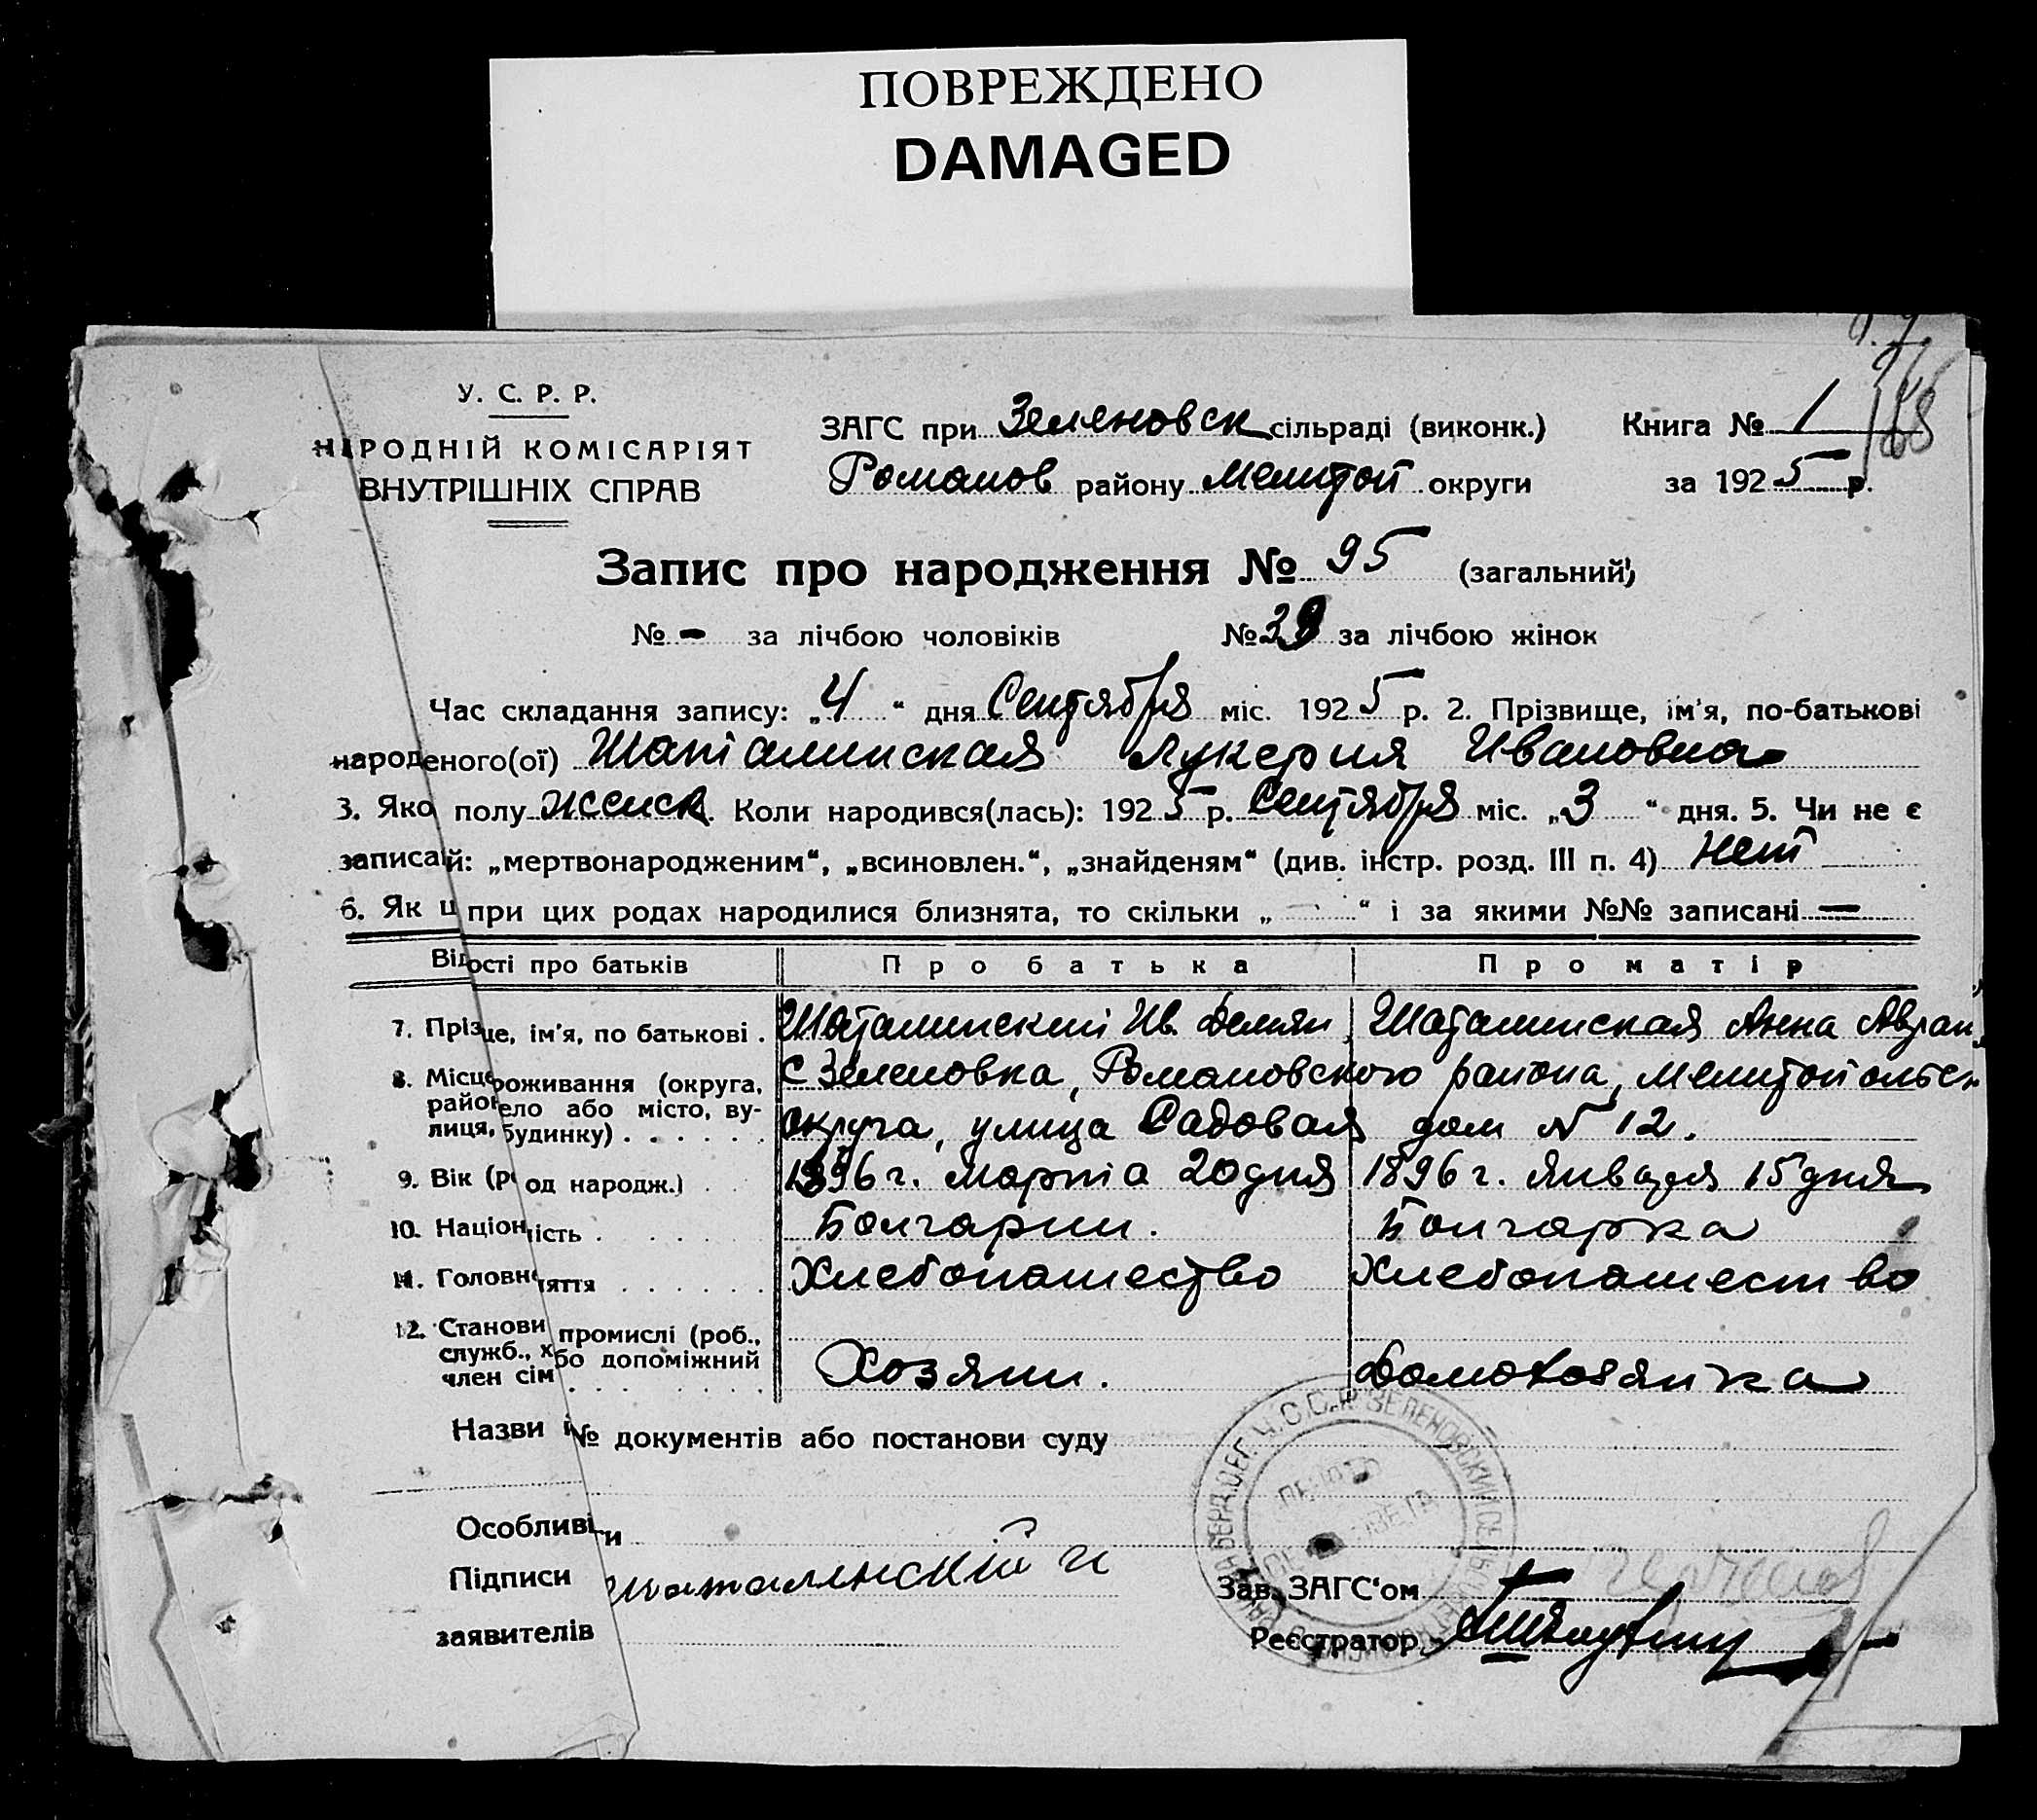 ПОВРЕЖДЕНО
DAMAGED
У. С. Р. Р.
НАРОДНІЙ КОМІСАРІЯТ
ВНУТРІШНІХ СПРАВ
ЗАГС при Зеленовск сільраді (виконк.) Книга № 1
Романов району Мелитоп округи за 1925 р.
Запис про народження № 95 (загальний)
№ - за лічбою чоловіків № за лічбою жінок
Час складання запису: „4“ дня Сентября міс. 1925 р. 2. Прізвище, ім'я, по-батькові
народженого(ої) Шаталинская Лукерия Ивановна
3. Яко полу женск. Коли народився(лась): 1925 р. Сентября міс. „3“ дня. 5. Чи не є
записай: „мертвонародженим“, „всиновлен.“, „знайденям“ (див. інстр. розд. III п. 4) Нет
6. Як щ при цих родах народилися близнята, то скільки „ - “ і за якими №№ записані —
Від ості про батьків Про батька Про матір
7. Пріз ще, ім'я, по батькові . Шаталинский Ив. Демян Шаталинская Анна Аврам
8. Місце роживання (округа, с Зеленовка, Романовского района, Мелитопольск
район ело або місто, ву-
лиця, будинку) . . . . . . округа, улица Садовая дом № 12.
9. Вік (р од народж.) . . 1896 г. Марта 20 дня 1896 г. Января 15 дня
10. Націон ість . Болгарин. Болгарка
11. Головн яття Хлебопашество Хлебопашество
12. Станови промислі (роб.,
служб., х бо допоміжний Хозяин. Домохозяика
член сім
Назви і № документів або постанови суду
Особливі и
Підписи Шаталинскій И Зав. ЗАГС'ом
заявителів Реєстратор